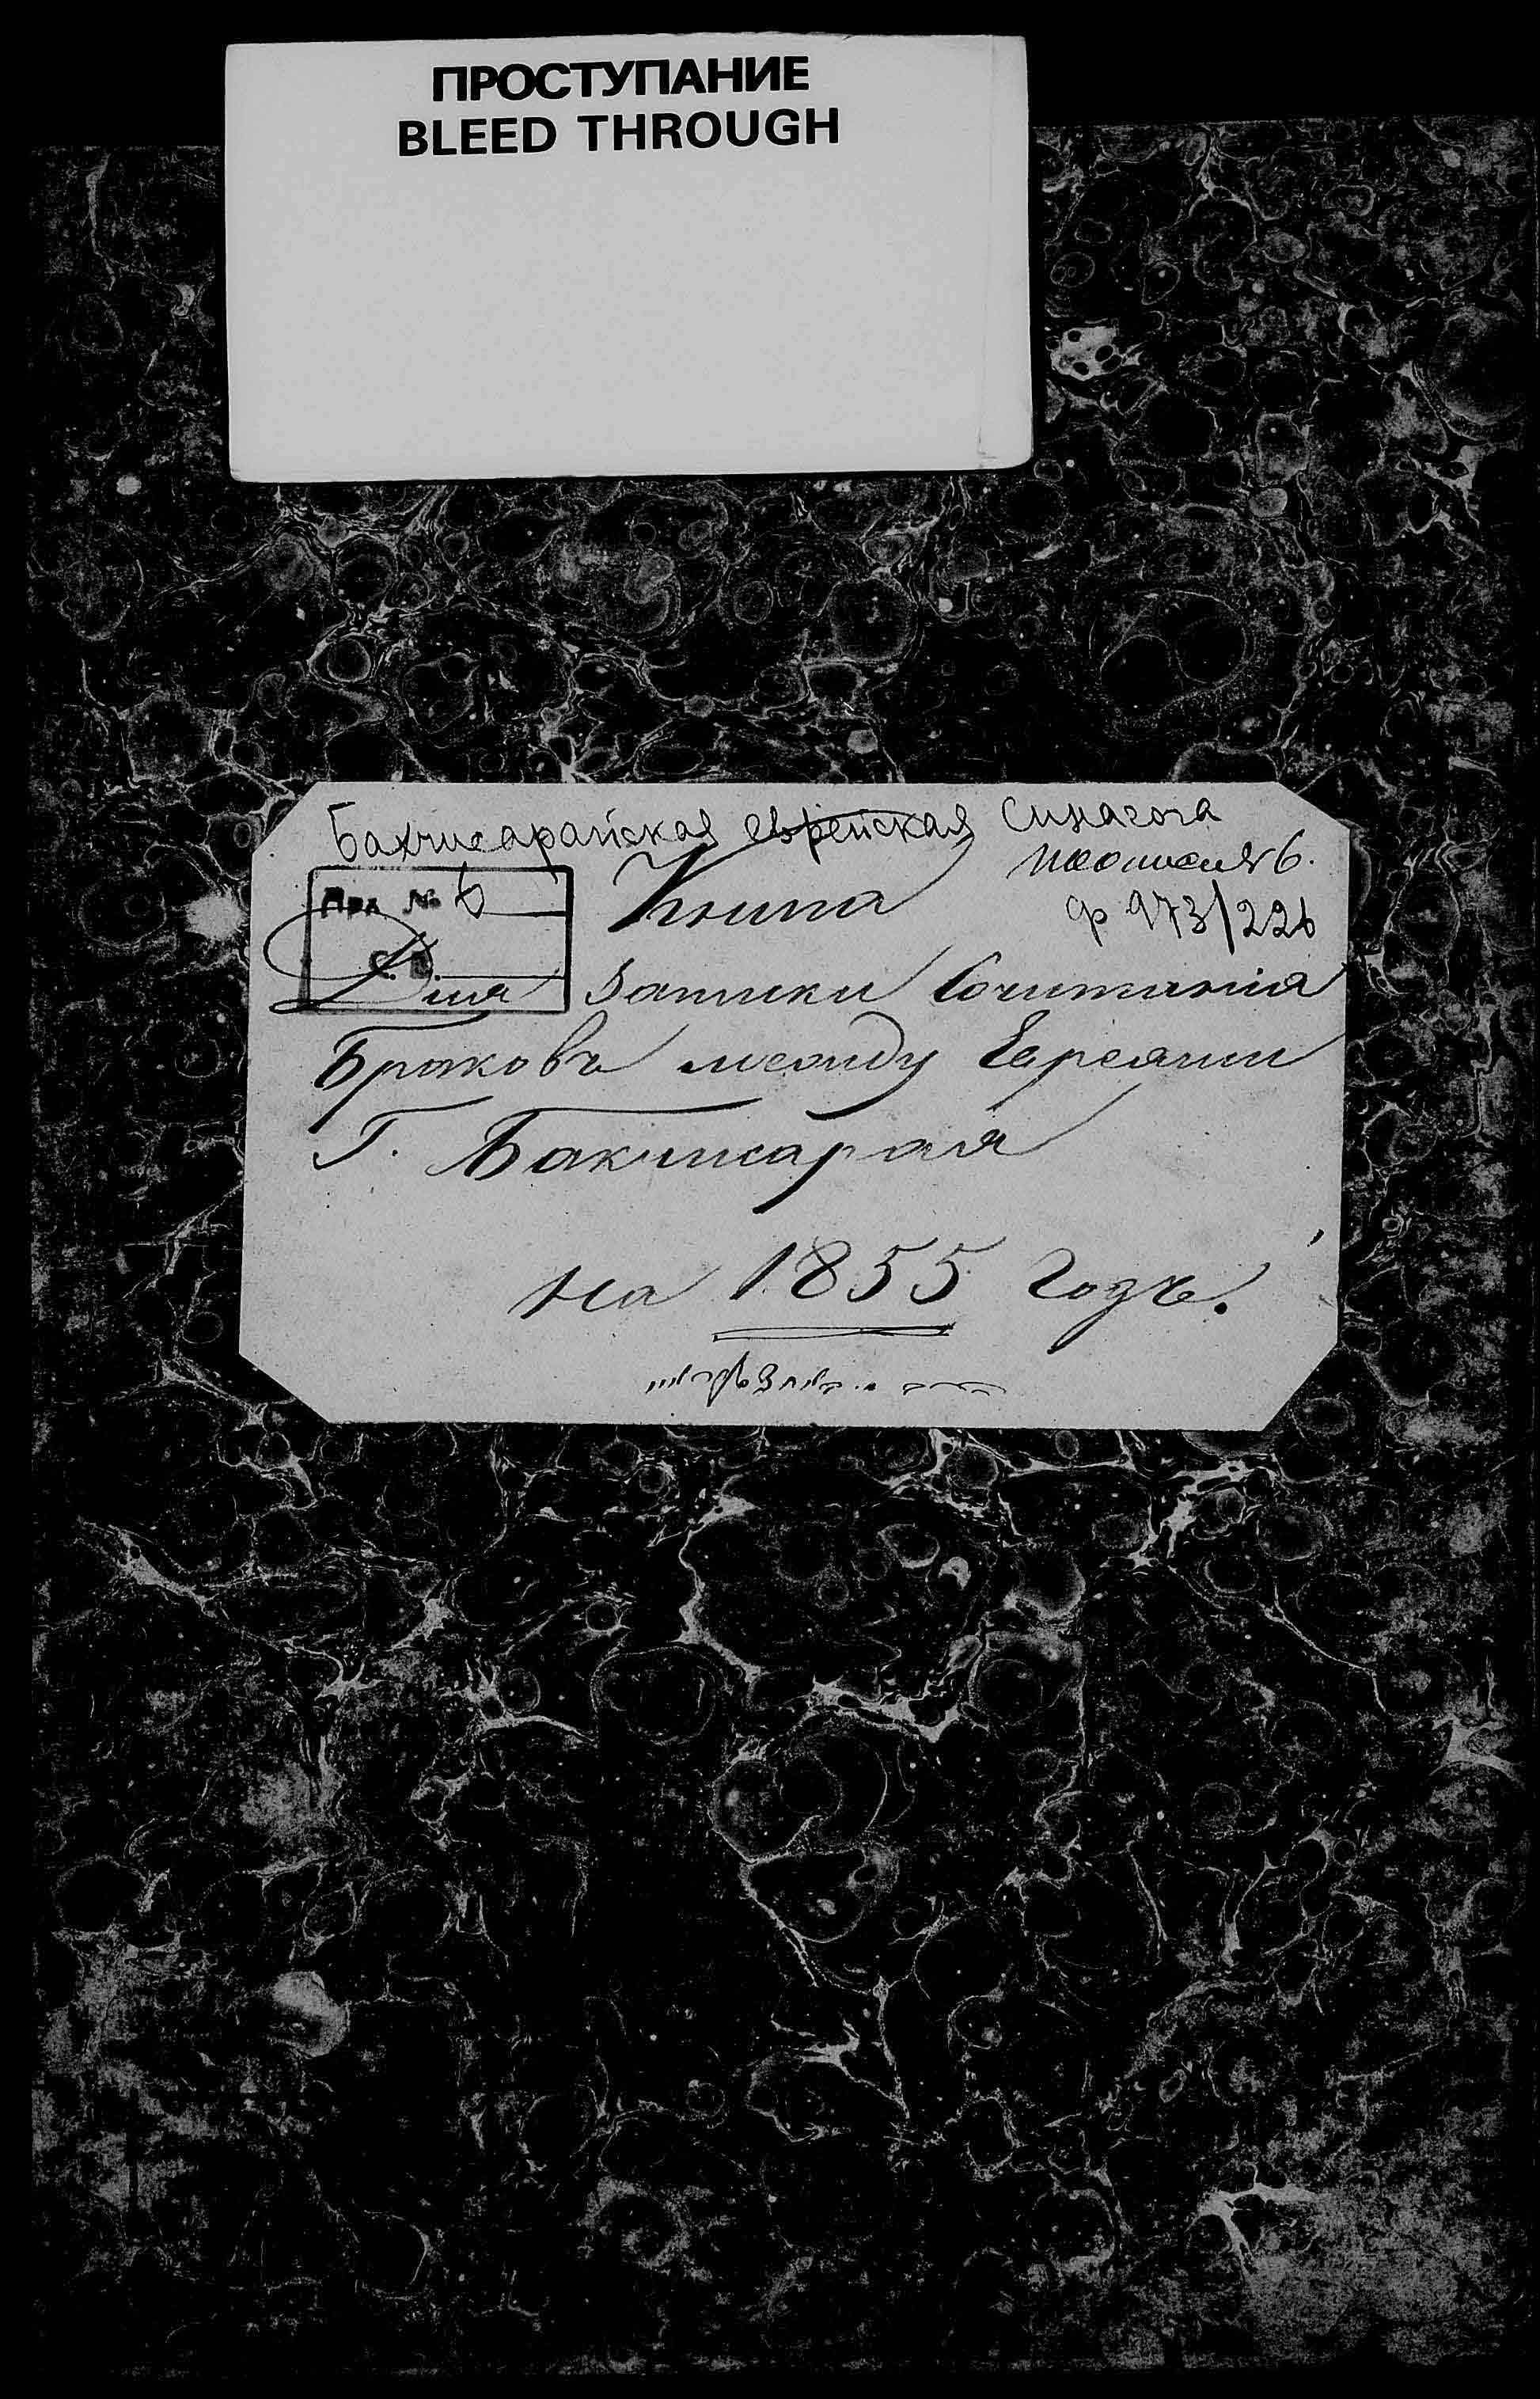 ПРОСТУПАНИЕ
BLEED THROUGH
Бахчисарайская еврейская Синагога
по описи № 6.
Книга
ф 973/226
Для записки Сочитанія
Браковъ между Евреями
Г. Бакчисарая
на 1855 годъ.